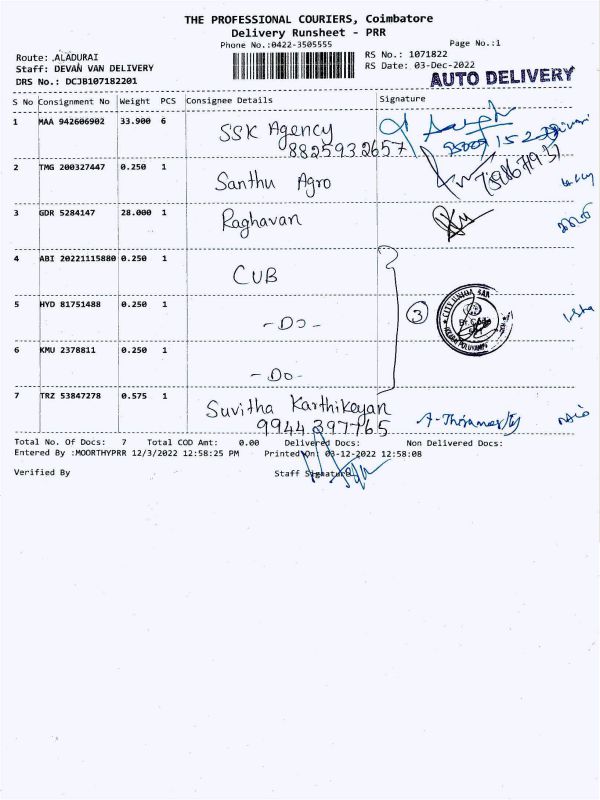 THE PROFESSIONAL COURIERS, Coimbatore
Delivery Runsheet - PRR
Phone No.:0422-3505555
Page No.:1
Route: ALADURAI
RS No.: 1071822
Staff: DEVAN VAN DELIVERY
RS Date: 03-Dec-2022
DRS No.: DCJB107182201
AUTO DELIVERY
S No Consignment No Weight PCS Consignee Details Signature
1 MAA 942606902 33.900 6 SSK Agency
8825932657
2 TMG 200327447 0.250 1 Santhu Agro
3 GDR 5284147 28.000 1 Raghavan
4 ABI 20221115880 0.250 1 CUB
5 HYD 81751488 0.250 1 -Do- 3
6 KMU 2378811 0.250 1 -Do-
7 TRZ 53847278 0.575 1 Suvitha Karthikeyan
9944397765
Total No. Of Docs: 7 Total COD Amt: 0.00 Delivered Docs: Non Delivered Docs:
Entered By :MOORTHYPRR 12/3/2022 12:58:25 PM Printed On: 03-12-2022 12:58:08
Verified By Staff Signature